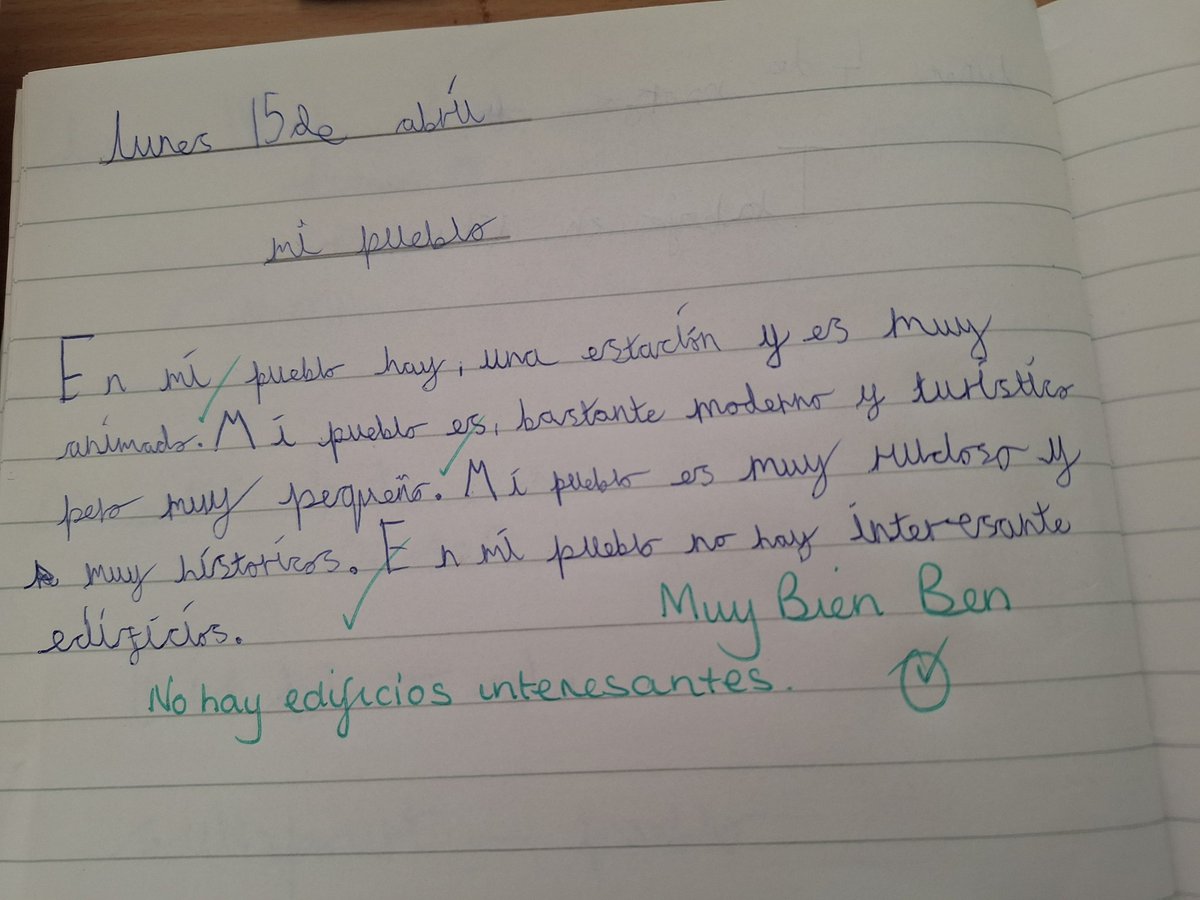 lunes 15 de abril
mi pueblo
En mi pueblo hay, una estación y es muy
animado. Mi pueblo es, bastante moderno y turístico
pero muy pequeño. Mi pueblo es muy ruidoso y
muy historicos. En mi pueblo no hay interesante
edificios.
Muy Bien Ben
No hay edificios interesantes.